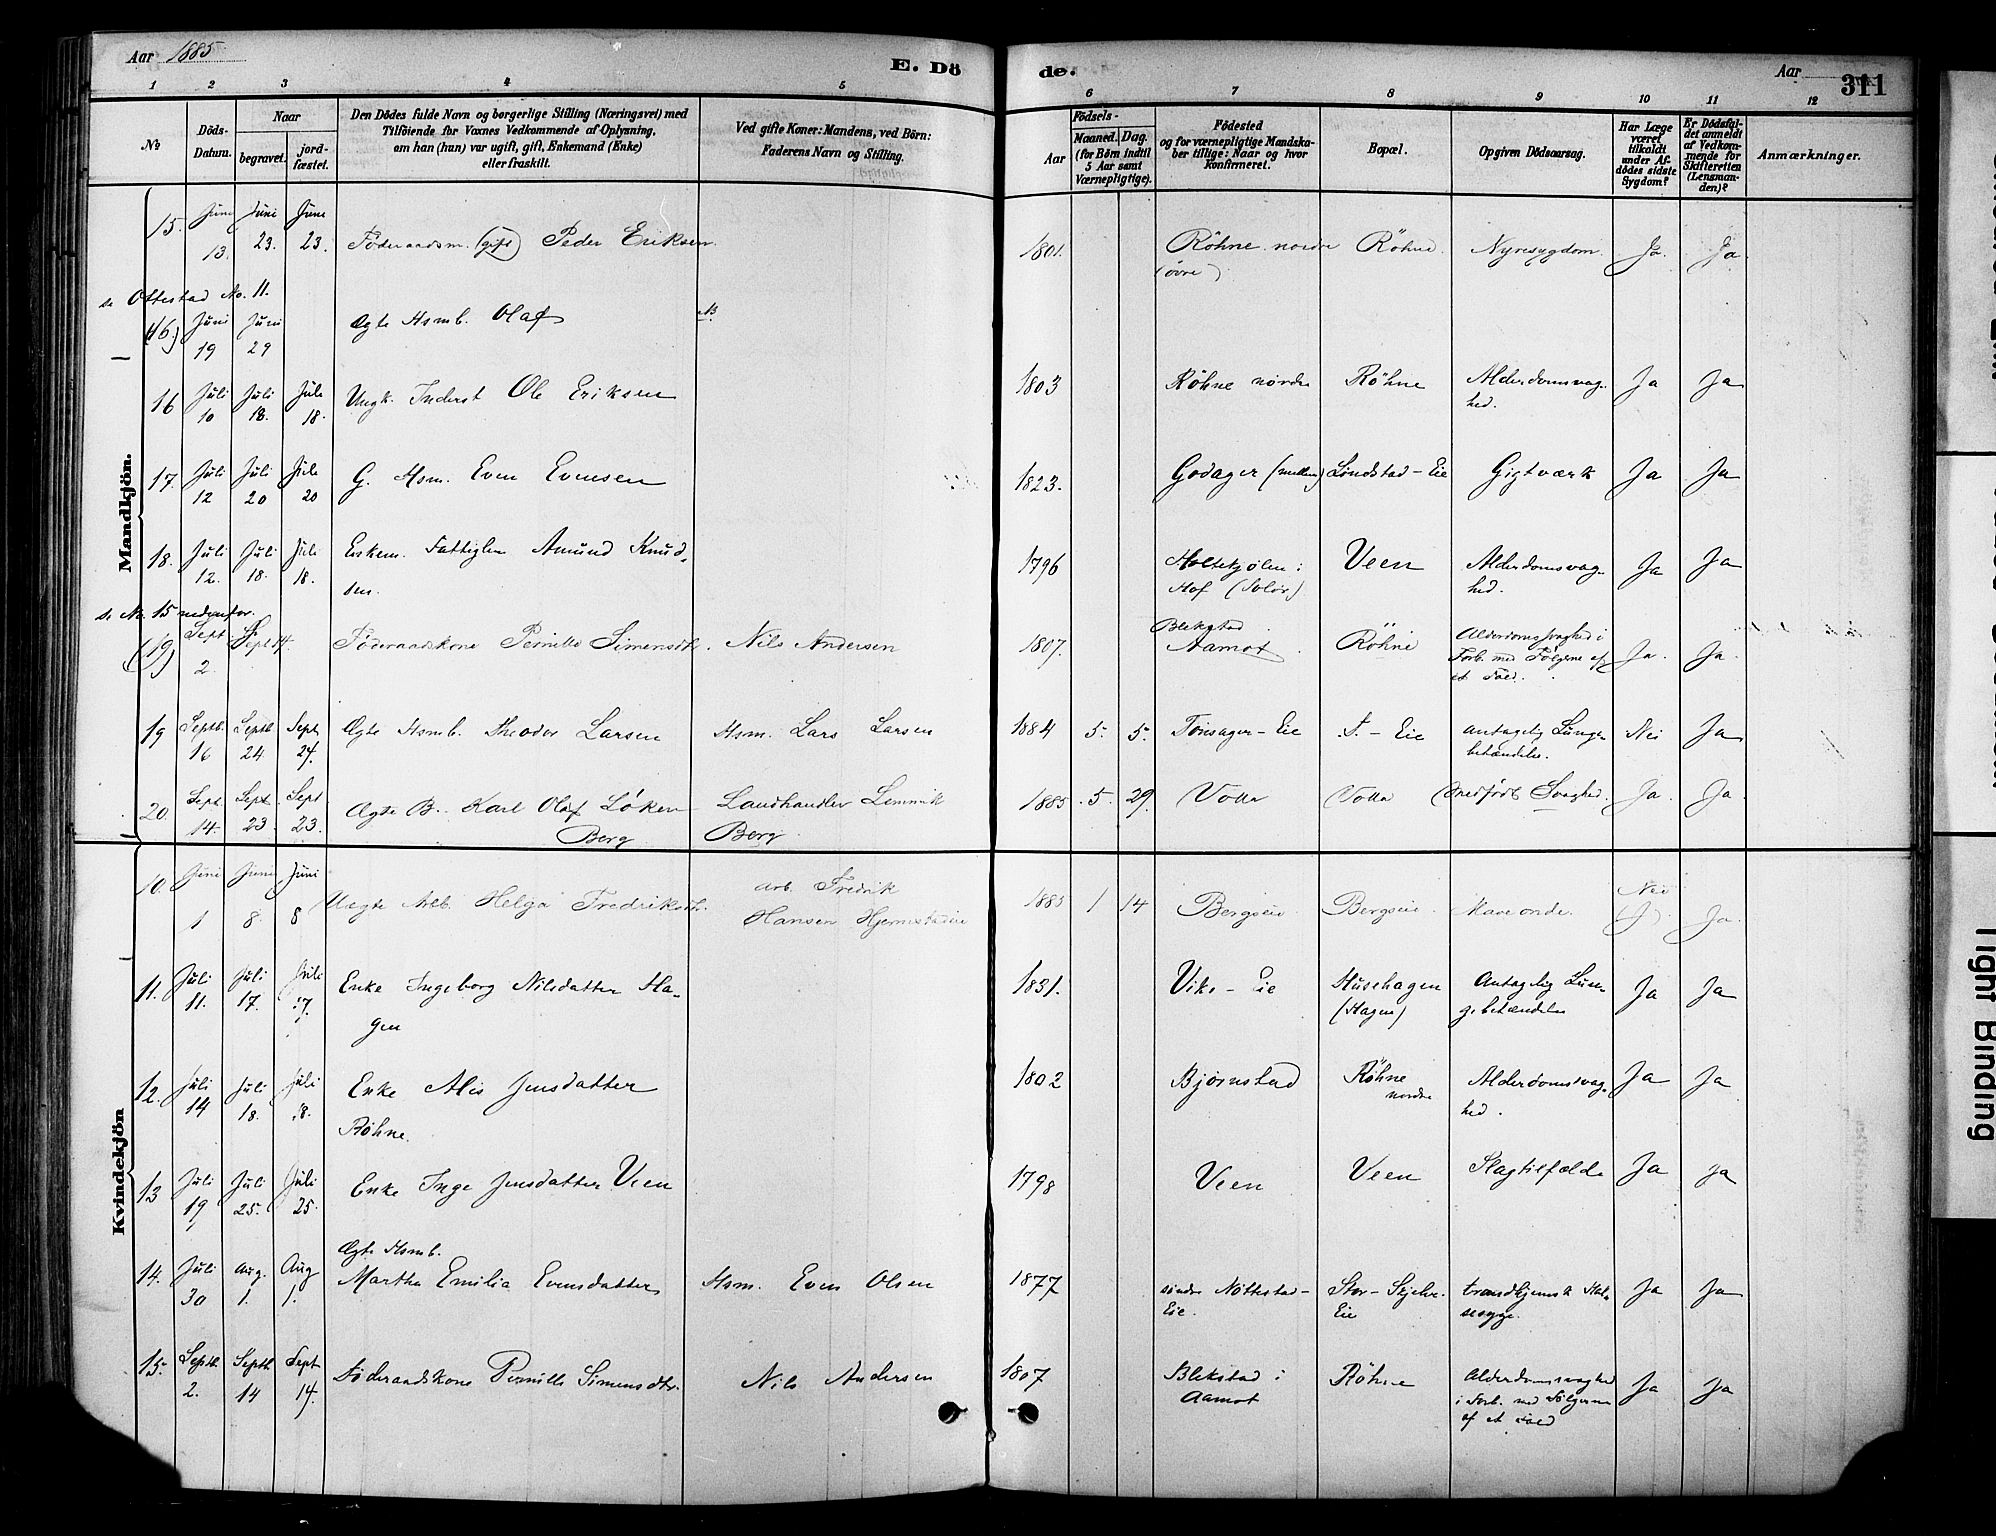 Aar 1885
E. Dö de.
Aar 311
1 2 3 4 5 6 7 8 9 10 11 12
No
Döds-Datum.
Naar
begravet.
jord-fæstet.
Den Dödes fulde Navn og borgerlige Stilling (Næringsvei) med
Tilföiende for Voxnes Vedkommende af Oplysning,
om han (hun) var ugift, gift, Enkemand (Enke)
eller fraskilt.
Ved gifte Koner: Mandens, ved Börn:
Faderens Navn og Stilling.
Födsels-
Aar
Maaned. Dag.
(for Börn indtil
5 Aar samt
Værnepligtige).
Födested
og for værnepligtige Mandska-
ber tillige: Naar og hvor
Konfirmeret.
Bopæl.
Opgiven Dödsaarsag.
Har Læge
været
tilkaldt
under Af-
dödes sidste
Sygdom?
Er Dödsfal-
det anmeldt
af Vedkom-
mende for
Skifteretten
(Lensman-
den)?
Anmærkninger.
Mandkjön.
15. Juni 13. Juni 23. Juni 23. Föderaadsm. (gift) Peder Eriksen. 1801. Röhne nordre (övre) Röhne Nyresygdom Ja. Ja
se Ottestad No. 11.
(16.) Juni 19 Juni 29 Ægte Hsmb. Olaf
16 Juli 10 Juli 18. Juli 18. Ungk. Inderst Ole Eriksen 1803 Röhne nordre Röhne Alderdomsvag-
hed. Ja Ja
17. Juli 12 Juli 20 Juli 20 G. Hsm. Even Evensen 1823. Godager (mellem) Lundstad-Eie Gigtværk Ja Ja
18. Juli 12. Juli 18. Juli 18. Enkem. Fattiglem Amund Knud-
sen. 1796 Holtekjølen i
Hof (Solör) Veen Alderdomsvag-
hed. Ja Ja
se No. 15 nedenfor.
(19) Sept. 2. Sept 14. Föderaadskone Pernille Simensdtr. Nils Andersen 1807. Blekstad
Aamot Röhne Alderdomssvaghed i
Forb. med Fölgerne af
et Fald. Ja. Ja.
19 Septb. 16 Septb 24 Sept 24. Ægte Hsmb. Theodor Larsen Hsm. Lars Larsen 1884 5. 5. Tönsager-Eie T.-Eie antagelig Lunge-
betændelse. Nei Ja
20. Sept. 14. Sept. 23 Sept 23. Ægte B. Karl Olaf Løken
Berg Landhandler
Berg. 1885 5. 29. Volla Volla Medfödt Svaghed. Ja. Ja.
Kvindekjön
10. Juni 1 Juni 8. Juni 8 Uægte Arb. Helga Fredriksdtr. Arb. Fredrik
Hansen Hjemstadeie 1885 1 14 Bergseie Bergseie. Mave onde. Nei
(J) Ja.
11. Juli 11. Juli 17. Juli 17. Enke Ingeborg Nilsdatter Ha-
gen 1831. Vik-Eie Husehagen
(Hagen) Antagelig Lun-
gebetændelse Ja Ja
12. Juli 14 Juli 18. Juli 18. Enke Alis Jensdatter
Röhne. 1802 Bjørnstad Röhne
nordre Alderdomssvag-
hed. Ja Ja
13 Juli 19 Juli 25. Juli 25. Enke Inge Jensdatter Veen 1798 Veen Veen Slagtilfælde Ja Ja
14. Juli 30 Aug. 1. Aug 1. Ægte Hsmb.
Martha Emilia Evensdatter Hsm. Even Olsen 1877 söndre Nöttestad-
Eie. Stor-Skjelve-
Eie brandkjernsk Hal-
sesyge. Ja Ja
15. Septb. 2. Septb 14 Sept 14. Föderaadskone Pernille Simensdtr. Nils Andersen 1807 Blekstad i
Aamot Röhne Alderdomssvaghed
i Forb. med Fölgerne
af et Fald Ja Ja
Tight Binding